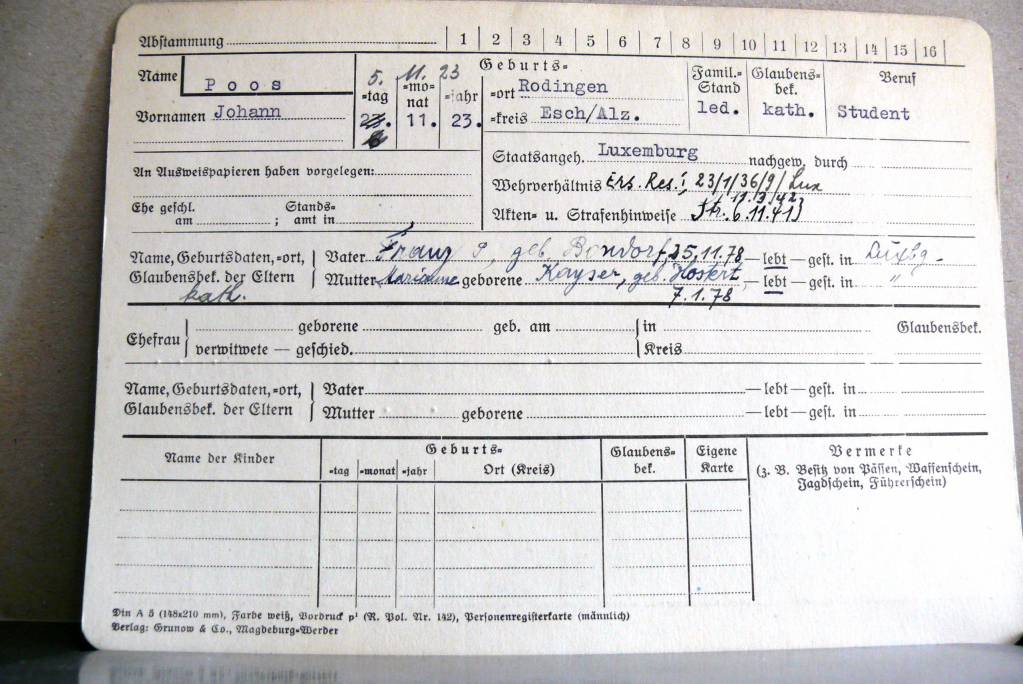 Abstammung 1 2 3 4 5 6 7 8 9 10 11 12 13 14 15 16
Name Poos 5. 11. 23 Geburts= Famil.= Glaubens= Beruf
=tag =mo= =jahr =ort Rodingen Stand bek.
nat
Vornamen Johann 23. 11. 23. =kreis Esch/Alz. led. kath. Student
Staatsangeh. Luxemburg nachgew. durch
An Ausweispapieren haben vorgelegen:
Wehrverhältnis Ers. Res. I, 23/1/36/9/Lux
Ehe geschl. Stands=
am ; amt in ,
11.3.42
Akten= u. Strafenhinweise 6.11.41
Name, Geburtsdaten,=ort, Vater Franz P, geb. Bondorf, 25.11.78 — lebt — gest. in Luxbg.
Glaubensbek. der Eltern Mutter Marianne geborene Kayser, geb. Hostert — lebt — gest. in "
kath. 7.1.78
Ehefrau geborene geb. am in Glaubensbek.
verwitwete — geschied. Kreis
Name, Geburtsdaten,=ort, Vater — lebt — gest. in
Glaubensbek. der Eltern Mutter geborene — lebt — gest. in
Name der Kinder Geburts= Glaubens= Eigene Vermerke
=tag =monat =jahr Ort (Kreis) bek. Karte (z. B. Besitz von Pässen, Waffenschein,
Jagdschein, Führerschein)
Din A 5 (148x210 mm), Farbe weiß, Vordruck p¹ (R. Pol. Nr. 142), Personenregisterkarte (männlich)
Verlag: Grunow & Co., Magdeburg=Werder